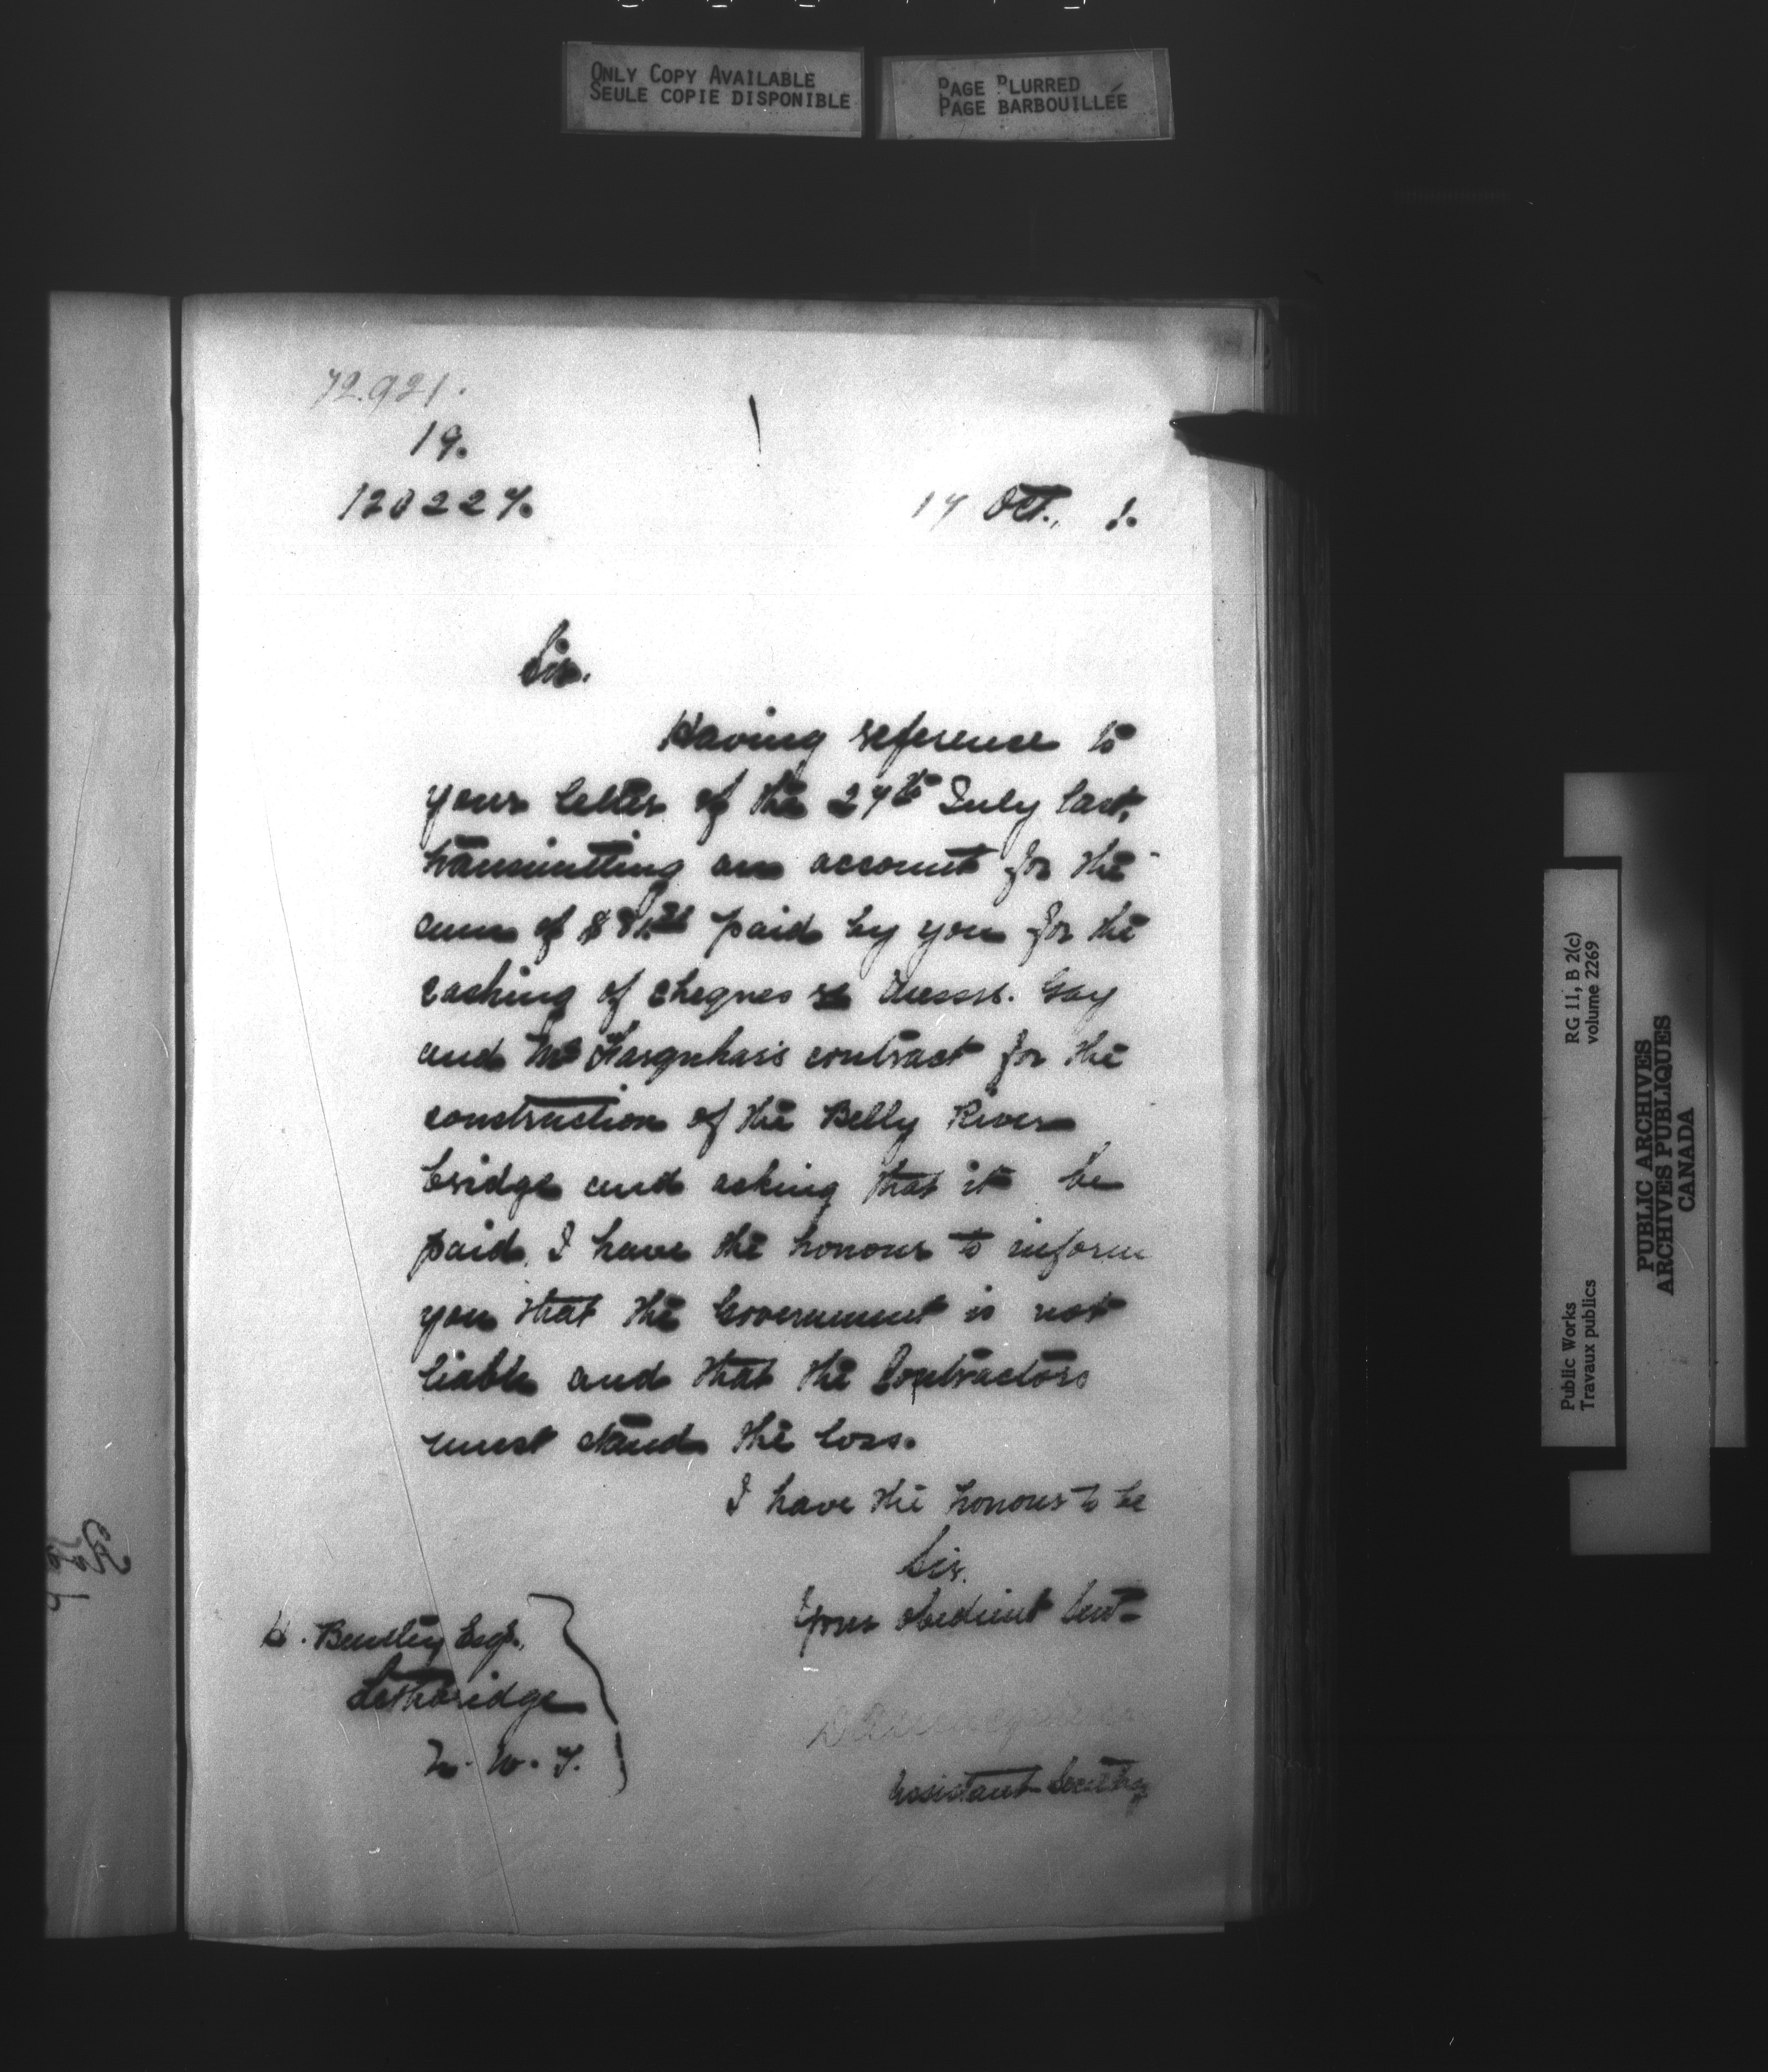 ONLY COPY AVAILABLE
SEULE COPIE DISPONIBLE
PAGE BLURRED
PAGE BARBOUILLÉE
72.921.
19.
120227.
17 Oct., 1.
Sir.
Having reference to
your letter of the 27th July last,
transmitting an account for the
sum of $ paid by you for the
caching of cheques re Messrs. Gay
and McFarquhar's contract for the
construction of the Belly River
bridge and asking that it be
paid, I have the honour to inform
you that the Government is not
liable and that the Contractors
must stand the loss.
I have the honour to be
Sir.
Your obedient Servt-
H. Bentley Esqr.,
Lethbridge
N. W. T.
Assistant Secretary
Public Works RG 11, B 2(c)
Travaux publics volume 2269
PUBLIC ARCHIVES
ARCHIVES PUBLIQUES
CANADA